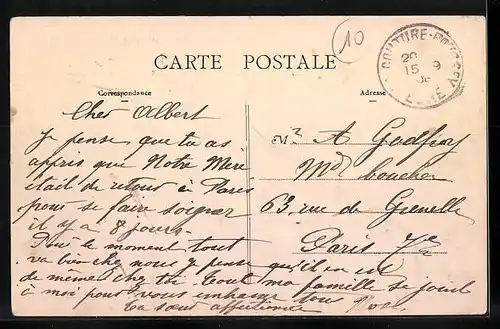 10
COUTURE-BOUSSEY
20
15 9
06
EURE
CARTE POSTALE
Correspondance
Adresse
Cher Albert
Je pense que tu as
appris que Notre Mère
était de retour à Paris
pour se faire soigner
il y a 8 jours.
Pour le moment tout
va bien chez nous je pense qu'il en est
de même chez toi. Tout ma famille se joint
à moi pour vous embrasser tous
ta sœur affectionnée
Mr A Godfroy
Md boucher
63, rue de Grenelle
Paris 7e